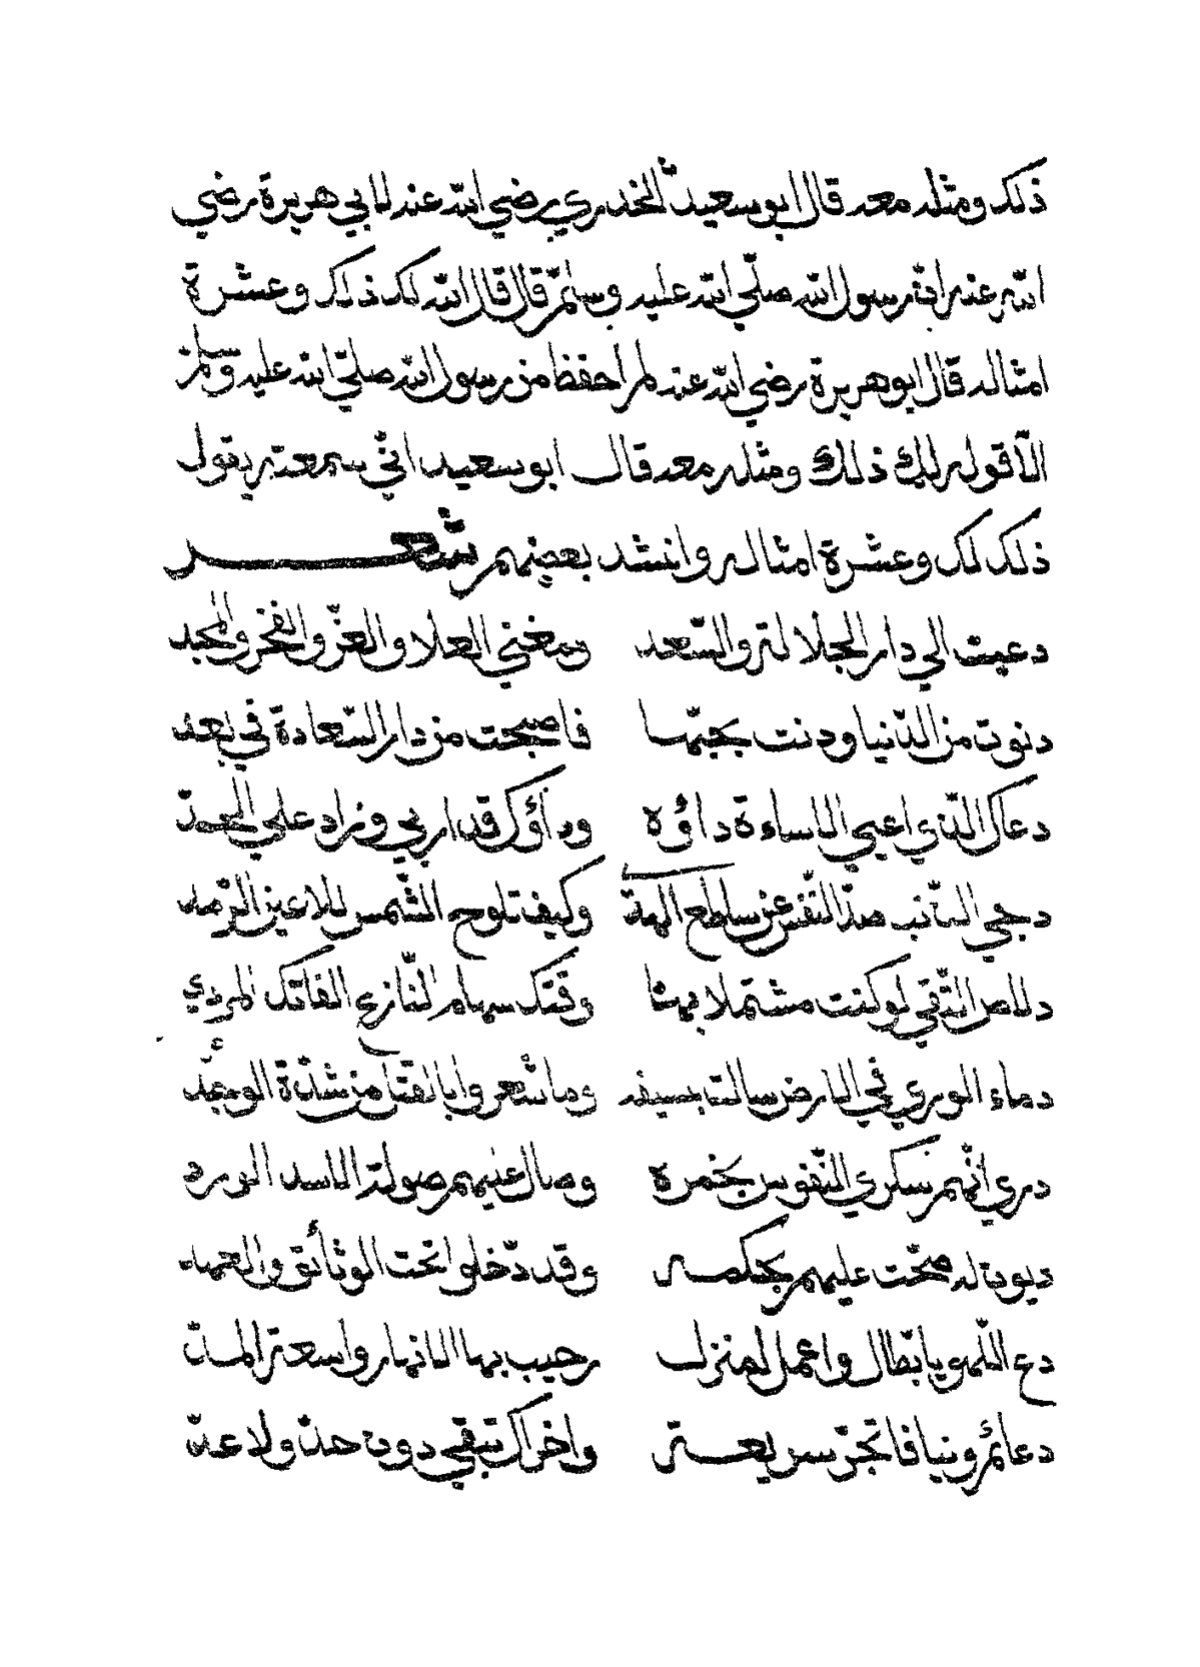 ذلك ومثله معه قال ابو سعيد الخدري رضي الله عنه لابي هريرة رضي
الله عنه ان رسول الله صلّي الله عليه وسلّم قال قال الله لك ذلك وعشرة
امثاله قال ابو هريرة رضي الله عنه لم احفظ من رسول الله صلّي الله عليه وسلّم
الّا قوله لك ذلك ومثله معه قال ابو سعيد انّي سمعته يقول
ذلك لك وعشرة امثاله وانشد بعضهم شعر
دعيت الي دار الجلالة والسّعد ومغني العلا والعزّ والفخر والمجد
دنوت من الدّنيا ودنت بحبّها فاصبحت من دار السّعادة في بعد
دعاك الّذي اعيي الاساءة داؤه وداؤك قد اربي وزاد علي الحدّ
دجي الذّنب صدّ النّفس عن ساطع الهدي وكيف تلوح الشّمس للاعين الرّمد
دلاص التّقي لو كنت مشتملا بها وقتك سهام النّازع الفاتك المردي
دماء الوري في الارض سالت بسيفه وما شعروا بالقتل من شدّة الوجد
دري انّهم سكري النّفوس بخمره وصال عليهم صولة الاسد الورد
ديون له صحّت عليهم بحكمه وقد دخلوا تحت الوثائق والعهد
دع اللّهو يا بطّال واعمل لمنزل رحيب بها الانهار واسعة المدّ
دعائم دنياك تجزّ سريعة واخراك تبقي دون حدّ ولا عدّ